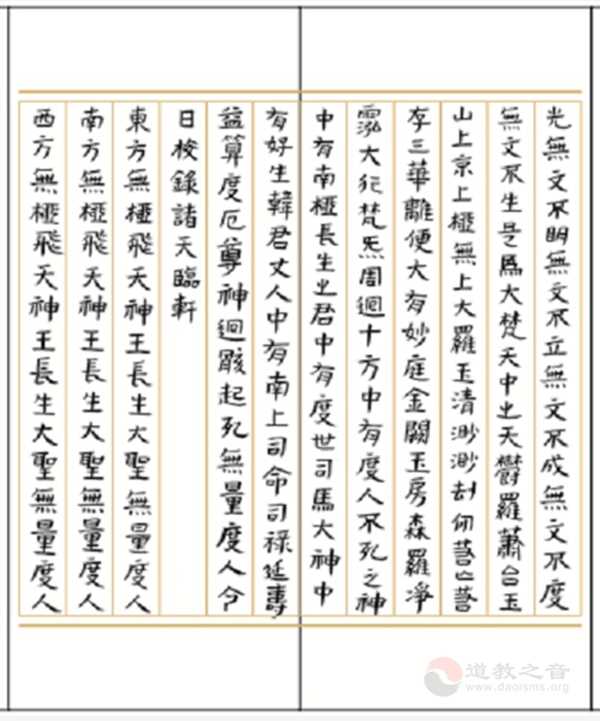 光無文不明無文不立無文不成無文不度
無文不生是爲大梵天中之天鬱羅蕭台玉
山上京上極無上大羅玉清渺渺劫仞若亡若
存三華離便大有妙庭金闕玉房森羅淨
霐大行梵炁周迴十方中有度人不死之神
中有南極長生之君中有度世司馬大神中
有好生韓君丈人中有南上司命司祿延壽
益算度厄尊神迴骸起死無量度人今
日校錄諸天臨軒
東方無極飛天神王長生大聖無量度人
南方無極飛天神王長生大聖無量度人
西方無極飛天神王長生大聖無量度人
道教之音
www.daoisms.org